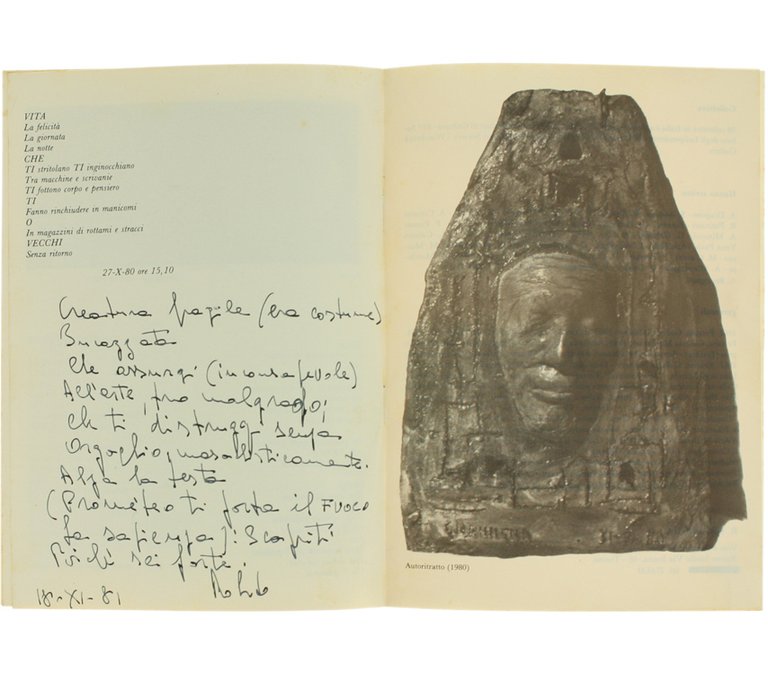 VITA
La felicità
La giornata
La notte
CHE
TI stritolano TI inginocchiano
Tra macchine e scrivanie
TI fottono corpo e pensiero
TI
Fanno rinchiudere in manicomi
O
In magazzini di rottami e stracci
VECCHI
Senza ritorno
27-X-80 ore 15,10
Creatura fragile (era costume)
Che assurgi (inconsapevole)
All'arte, tuo malgrado;
Ch ti distruggi senza
Orgoglio, masochisticamente.
Alza la testa
(Prometeo ti porta il FUOCO
La sapienza): Scopriti
Poiché sei forte.
18-XI-81
Autoritratto (1980)